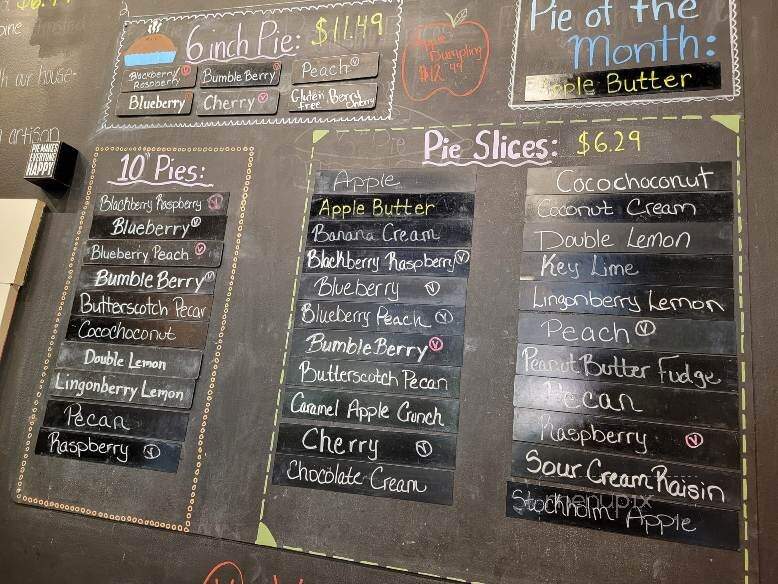 6 inch Pie: $11.49
Blackberry Raspberry V
Bumble Berry V
Peach V
Blueberry
Cherry V
Gluten free Berry
Apple
Dumpling
$12.49
Pie of the
Month:
Apple Butter
h our house-
artisan
PIE MAKES
EVERYONE
HAPPY
10" Pies:
Blackberry Raspberry V
Blueberry V
Blueberry Peach V
Bumble Berry V
Butterscotch Pecan
Cocochoconut
Double Lemon
Lingonberry Lemon
Pecan
Raspberry V
Pie Slices: $6.29
Apple
Apple Butter
Banana Cream
Blackberry Raspberry V
Blueberry V
Blueberry Peach V
BumbleBerry V
Butterscotch Pecan
Caramel Apple Crunch
Cherry V
Chocolate Cream
Cocochoconut
Coconut Cream
Double Lemon
Key Lime
Lingonberry Lemon
Peach V
Peanut Butter Fudge
Pecan
Raspberry V
Sour Cream Raisin
Stockholm Apple
menupix